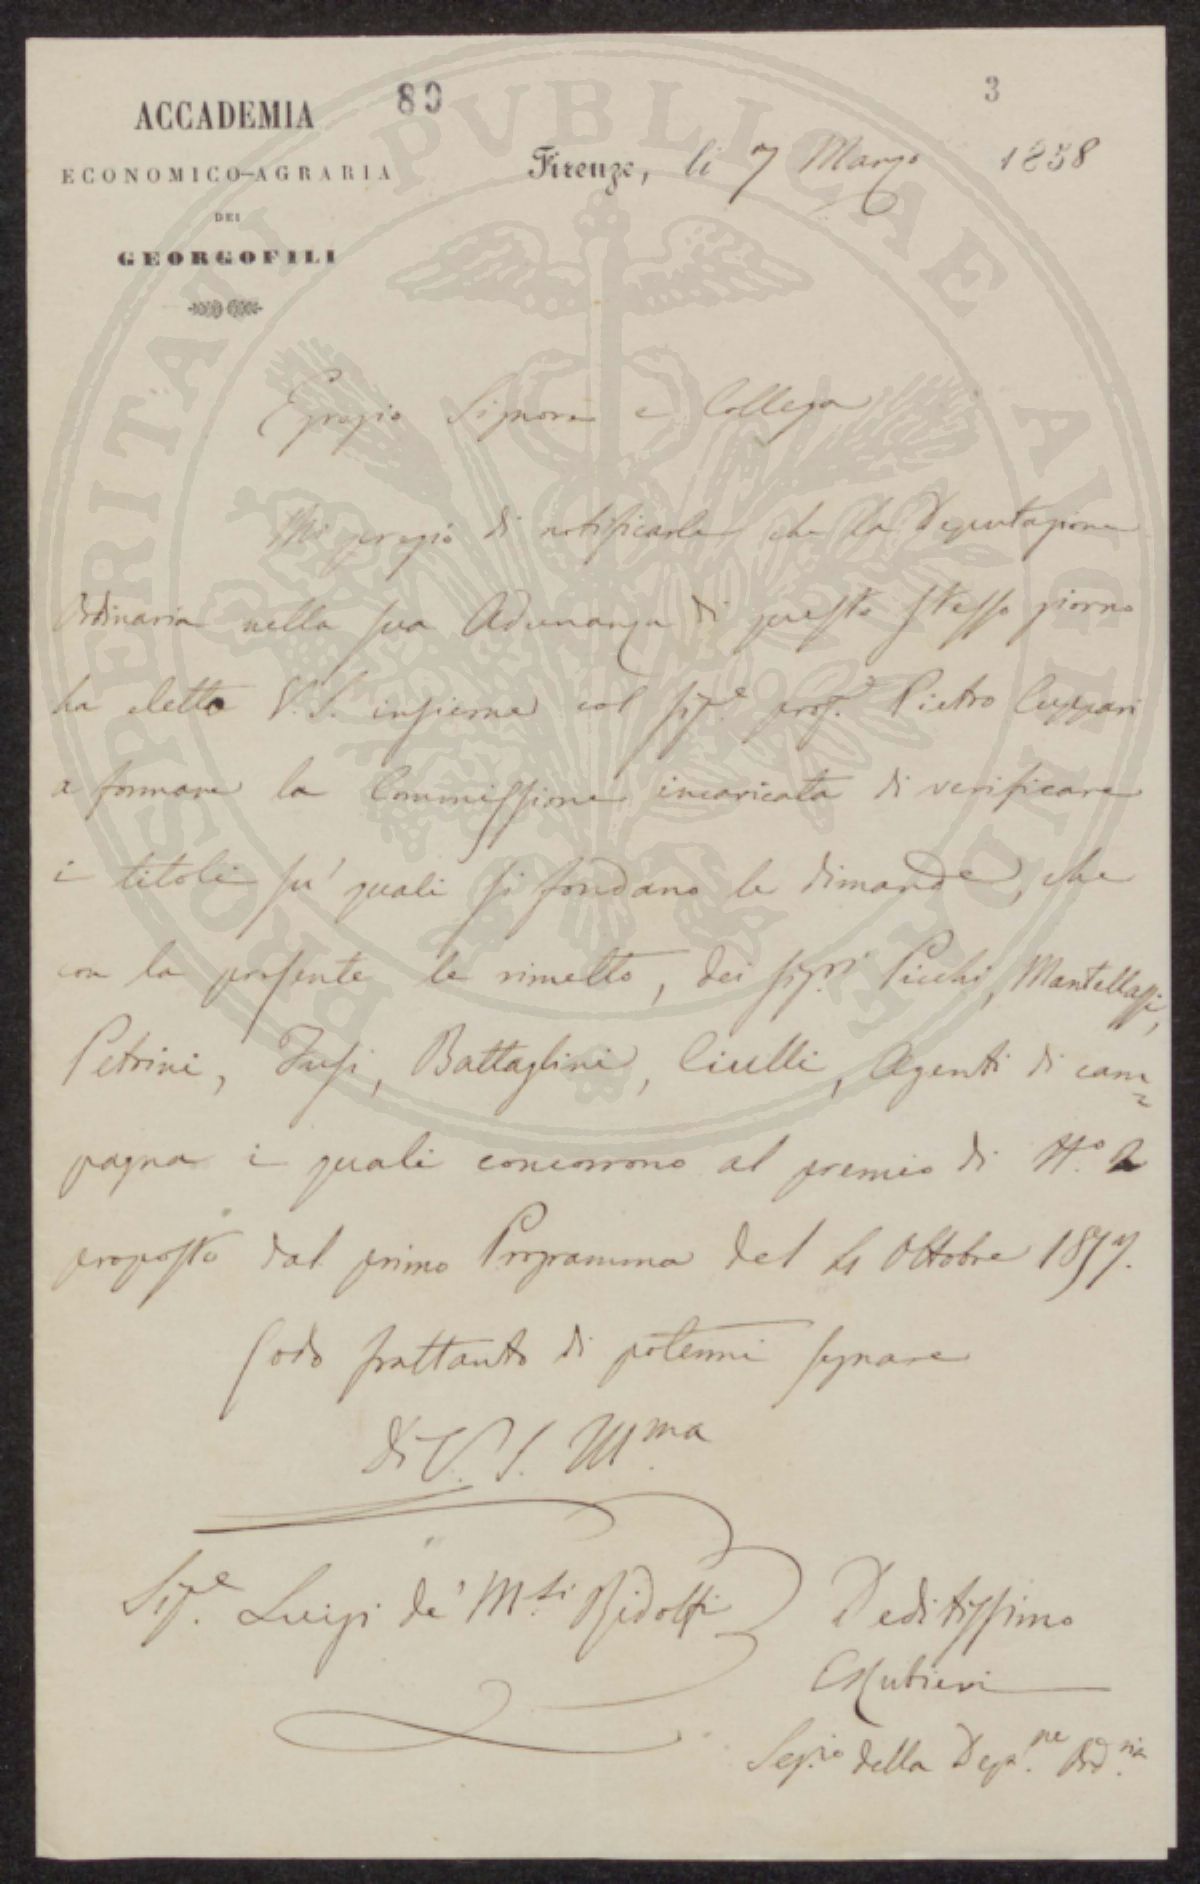 ACCADEMIA
ECONOMICO-AGRARIA
DEI
GEORGOFILI
80
3
Firenze, li 7 Marzo 1858
Egregio Signore e Collega
Mi pregio di notificarle che la Deputazione
Ordinaria nella sua Adunanza di questo stesso giorno
ha eletto V. S. insieme col Sig.e prof.e Pietro Cuppari
a formare la Commissione incaricata di verificare
i titoli su' quali si fondano le dimande, che
con la presente le rimetto, dei Sig.ri Picchi, Mantellassi,
Petrini, Fusi, Battaglini, Ciulli, Agenti di cam=
pagna i quali concorrono al premio di N.o 2
proposto dal primo Programma del 4 Ottobre 1857.
Godo frattanto di potermi segnare
di V. S. Ill.ma
Sig.e Luigi de' M.si Ridolfi
Deditissimo
C Rubieri
Seg.rio della Dep.ne Ord.ria
PROSPERITATI PVBLICAE AVGENDAE